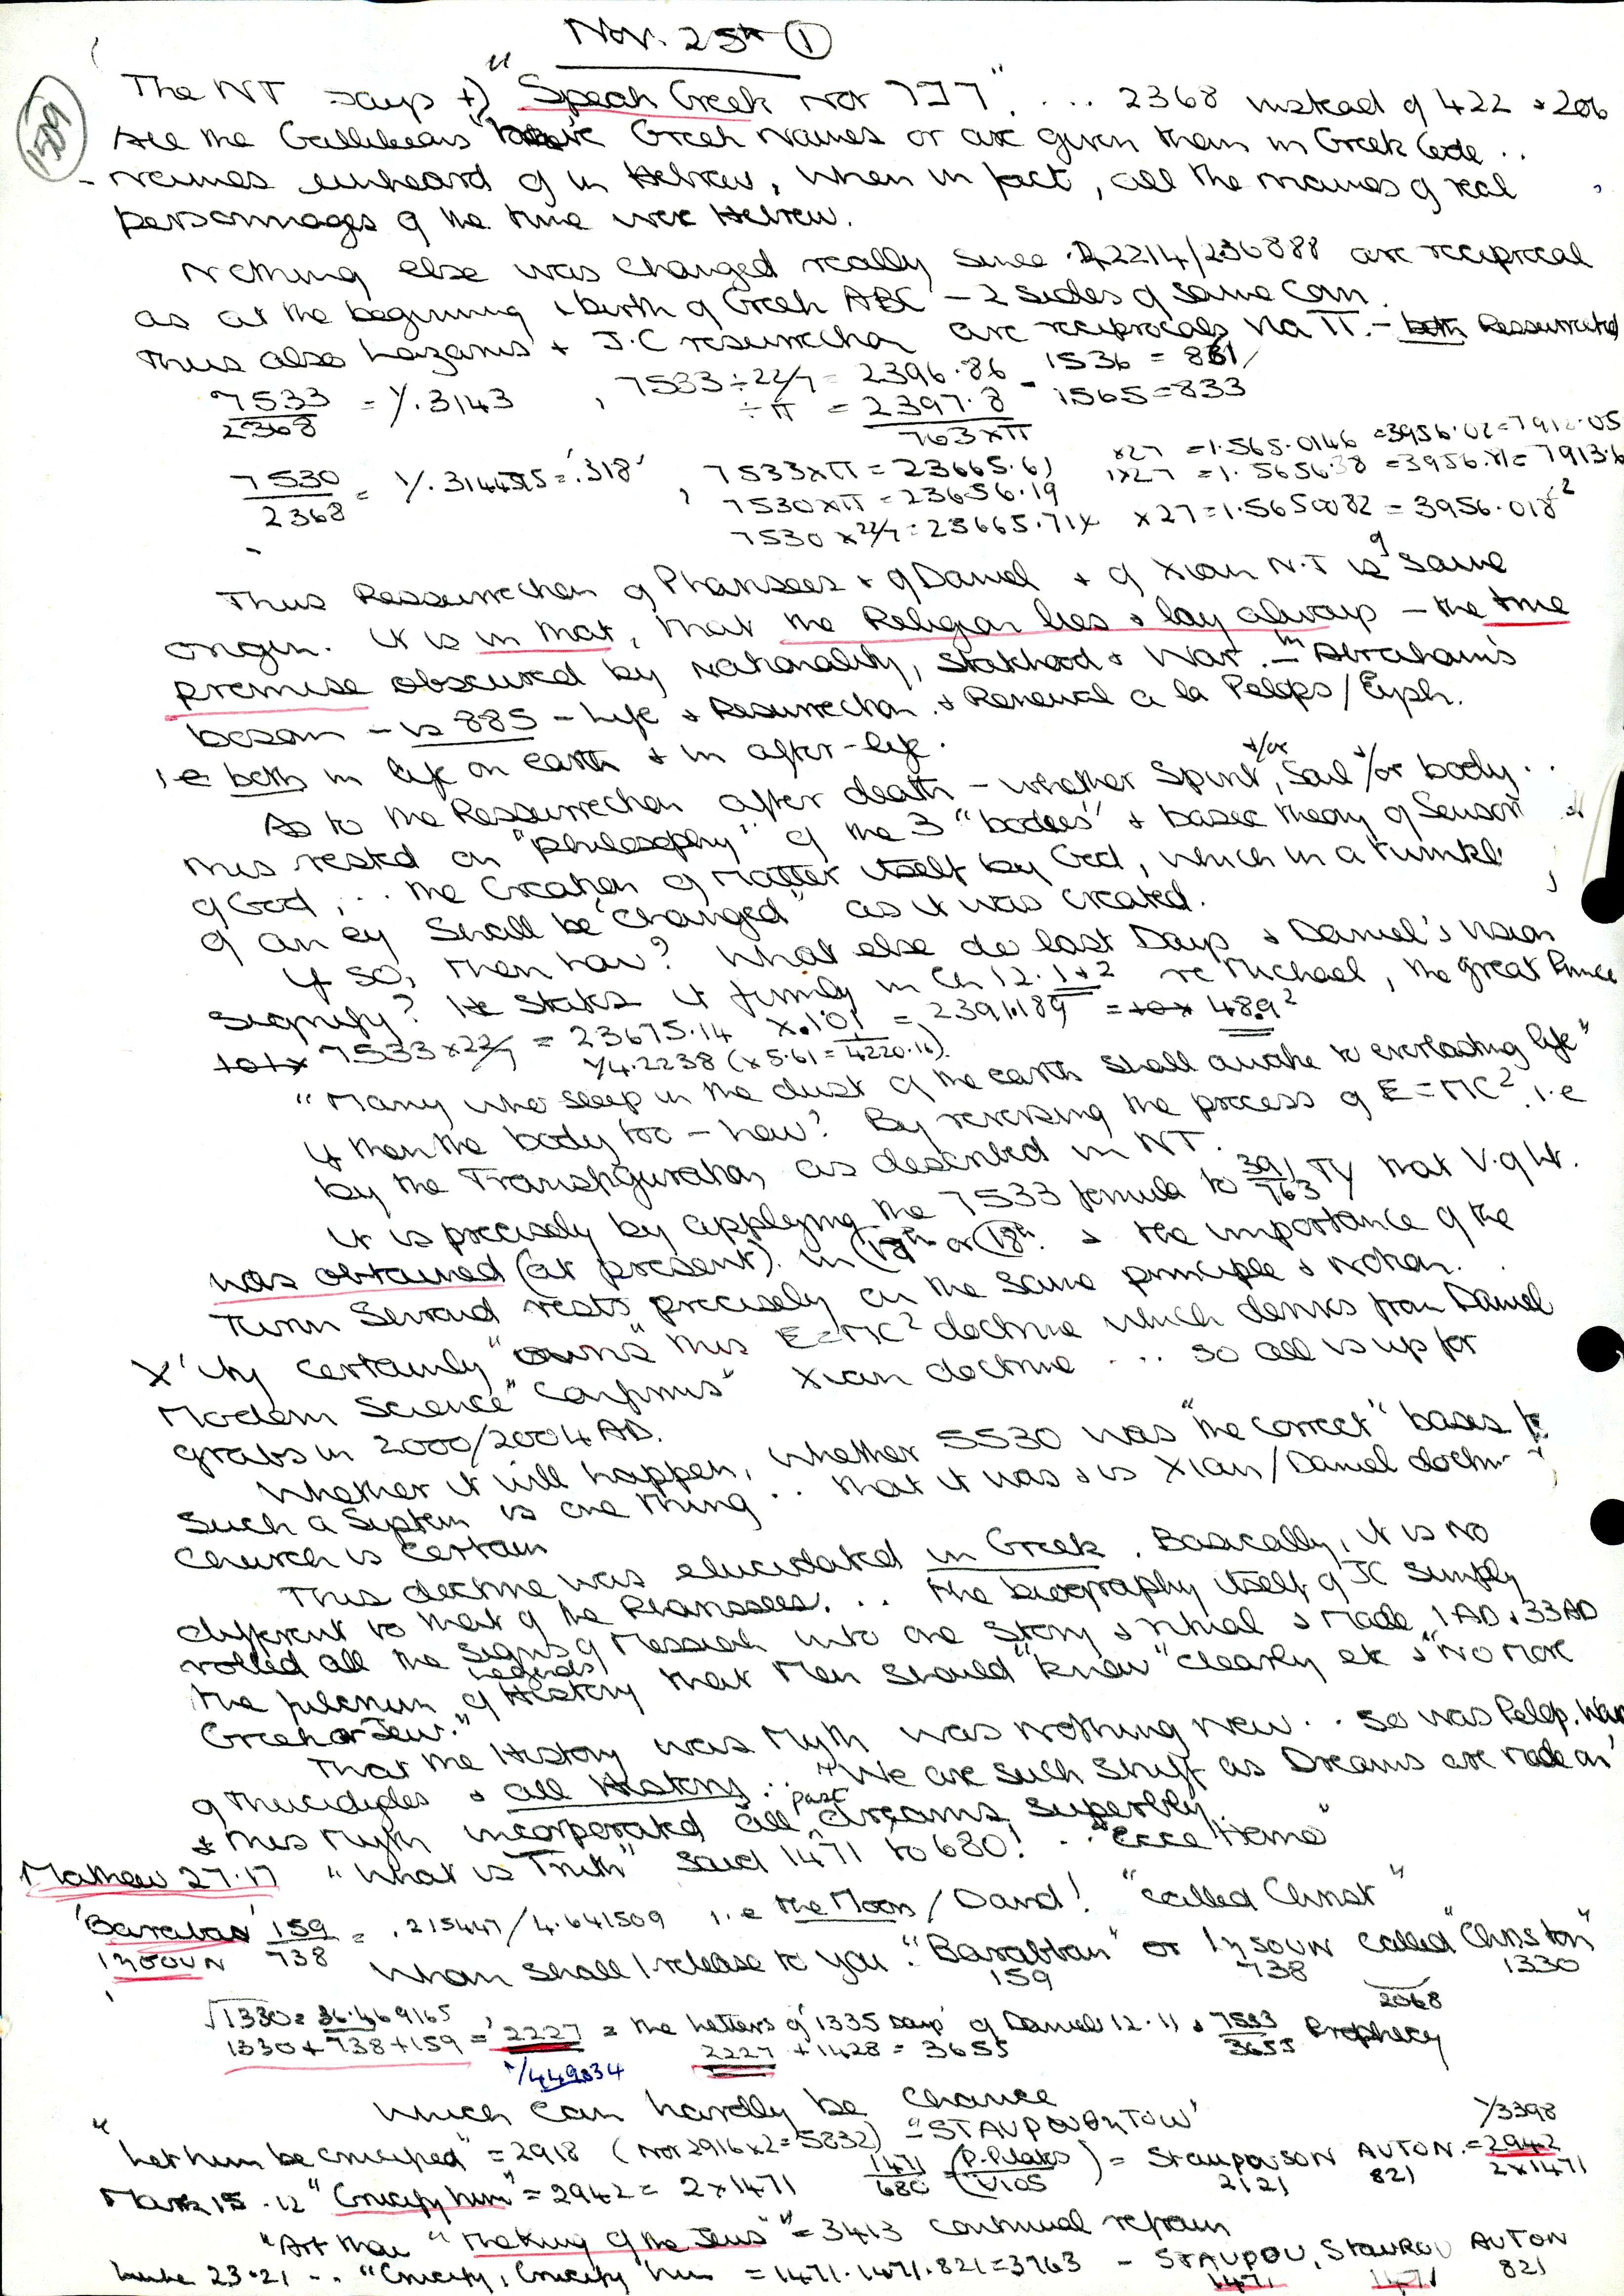 Nov. 25th ①
1509
The NT says +) "Speak Greek nor 7 7". ... 2368 instead of 422 & 206
All the Gallileans have Greek Names or are given them in Greek Code ..
- Names unheard of in Hebrew, when in fact, all the names of real
personnages of the time were Hebrew.
Nothing else was changed really since 42214/236888 are reciprocal
as at the beginning & birth of Greek ABC - 2 sides of same coin.
Thus also Lazarus + J.C resurrection are reciprocals via π. - both Ressurrected
7533/2368 = 1/.3143 , 7533 ÷ 22/7 = 2396.86 - 1536 = 861/
÷ π = 2397.8 / 763xπ 1565 = 833
7530/2368 = 1/.314475 = '.318' , 7533xπ = 23665.61 x27 = 1.565.0146 = 3956.02 = 7912.05
7530xπ = 23656.19 1x27 = 1.5656.38 = 3956.71 = 7913.6
7530 x 22/7 = 23665.71x x27 = 1.5650082 = 3956.018
Thus Ressurrection of Pharisees & of Daniel & of Xian N.T is of same
origin. It is in that, that the Religion lies & lay always - the true
premise obscured by Nationality, Statehood & War. - in Abraham's
bosom - is 885 - Life & Resurrection & Renewal a la Pelops/Eyph.
i.e both in life on earth & in after-life.
As to the Ressurrection after death - whether Spirit &/or, Soul &/or body..
this rested on "philosophy" of the 3 "bodies" & basic theory of Senson
of God, .. the Creation of Matter itself by God, which in a twinkl
of an ey shall be "changed" as it was created.
If so, then how? What else do last Days & Daniel's vision
signify? He states it firmly in Ch 12. 1+2 re Michael, the great Prince
7533 x 22/7 = 23675.14 x.101 = 2391.189 = 48.9²
1/4.2238 (x 5.61 = 4220.16).
"Many who sleep in the dust of the earth shall awake to everlasting life"
If then the body too - how? By reversing the process of E=MC². i.e
by the Transfiguration as described in NT.
It is precisely by applying the 7533 formula to 391/763 TY that V. of Lt.
was obtained (at present) in 17th or 18th. & the importance of the
Turin Shroud rests precisely on the same principle & notion.
X'ity certainly "owns" this E=MC² doctrine which derives from Daniel
Modern Science "Confirms" Xian doctrine ... so all is up for
grabs in 2000/2004 AD.
Whether it will happen, whether 5530 was "the correct" bases for
such a System is one thing .. that it was & is Xian/Daniel doctrin
Church is certain
This doctrine was elucidated in Greek. Basically, it is no
different to that of the Pharisees. .. The biography itself of JC simply
rolled all the signs of Messiah into one story & ritual & made 1AD & 33AD
the fulcrum of Legends History that Men should "know" clearly etc & "no more
Greek or Jew."
That the History was Myth was nothing new .. so was Pelop. War
of Thucidydes & all History .. "We are such Stuff as Dreams are made on"
& this Myth incorporated all past dreams superbly.
Mathew 27.17 "What is Truth" said 1471 to 680! .. "Ecce Homo"
'Barabas' 159/738 = .215447/4.641509 i.e the Moon/David! "called Christ"
IHSOUN Whom shall I release to you "Barabban" or IHSOUN called "Christon"
159 738 1330
2068
√1330 = 36.469165
1330 + 738 + 159 = 2227 = the letters of '1335 days' of Daniel 12.11 & 7533/3655 Prophecy
1/449034 2227 + 1428 = 3655
which can hardly be chance
"Let him be crucified" = 2918 (nor 2916x2 = 5832) = STAUPOUENTOW' 1/3398
Mark 15.12 "Crucify him" = 2942 = 2x1471 1471/680 (P.Pilatos/VIOS) = STAUPOUSON AUTON. = 2942
2121 821 2x1471
"Art thou "The King of the Jews" = 3413 continual refrain
Luke 23.21 .. "Crucify, Crucify him = 1471.1471.821 = 3763 - STAUPOU, STAUROU AUTON
1471 1471 821